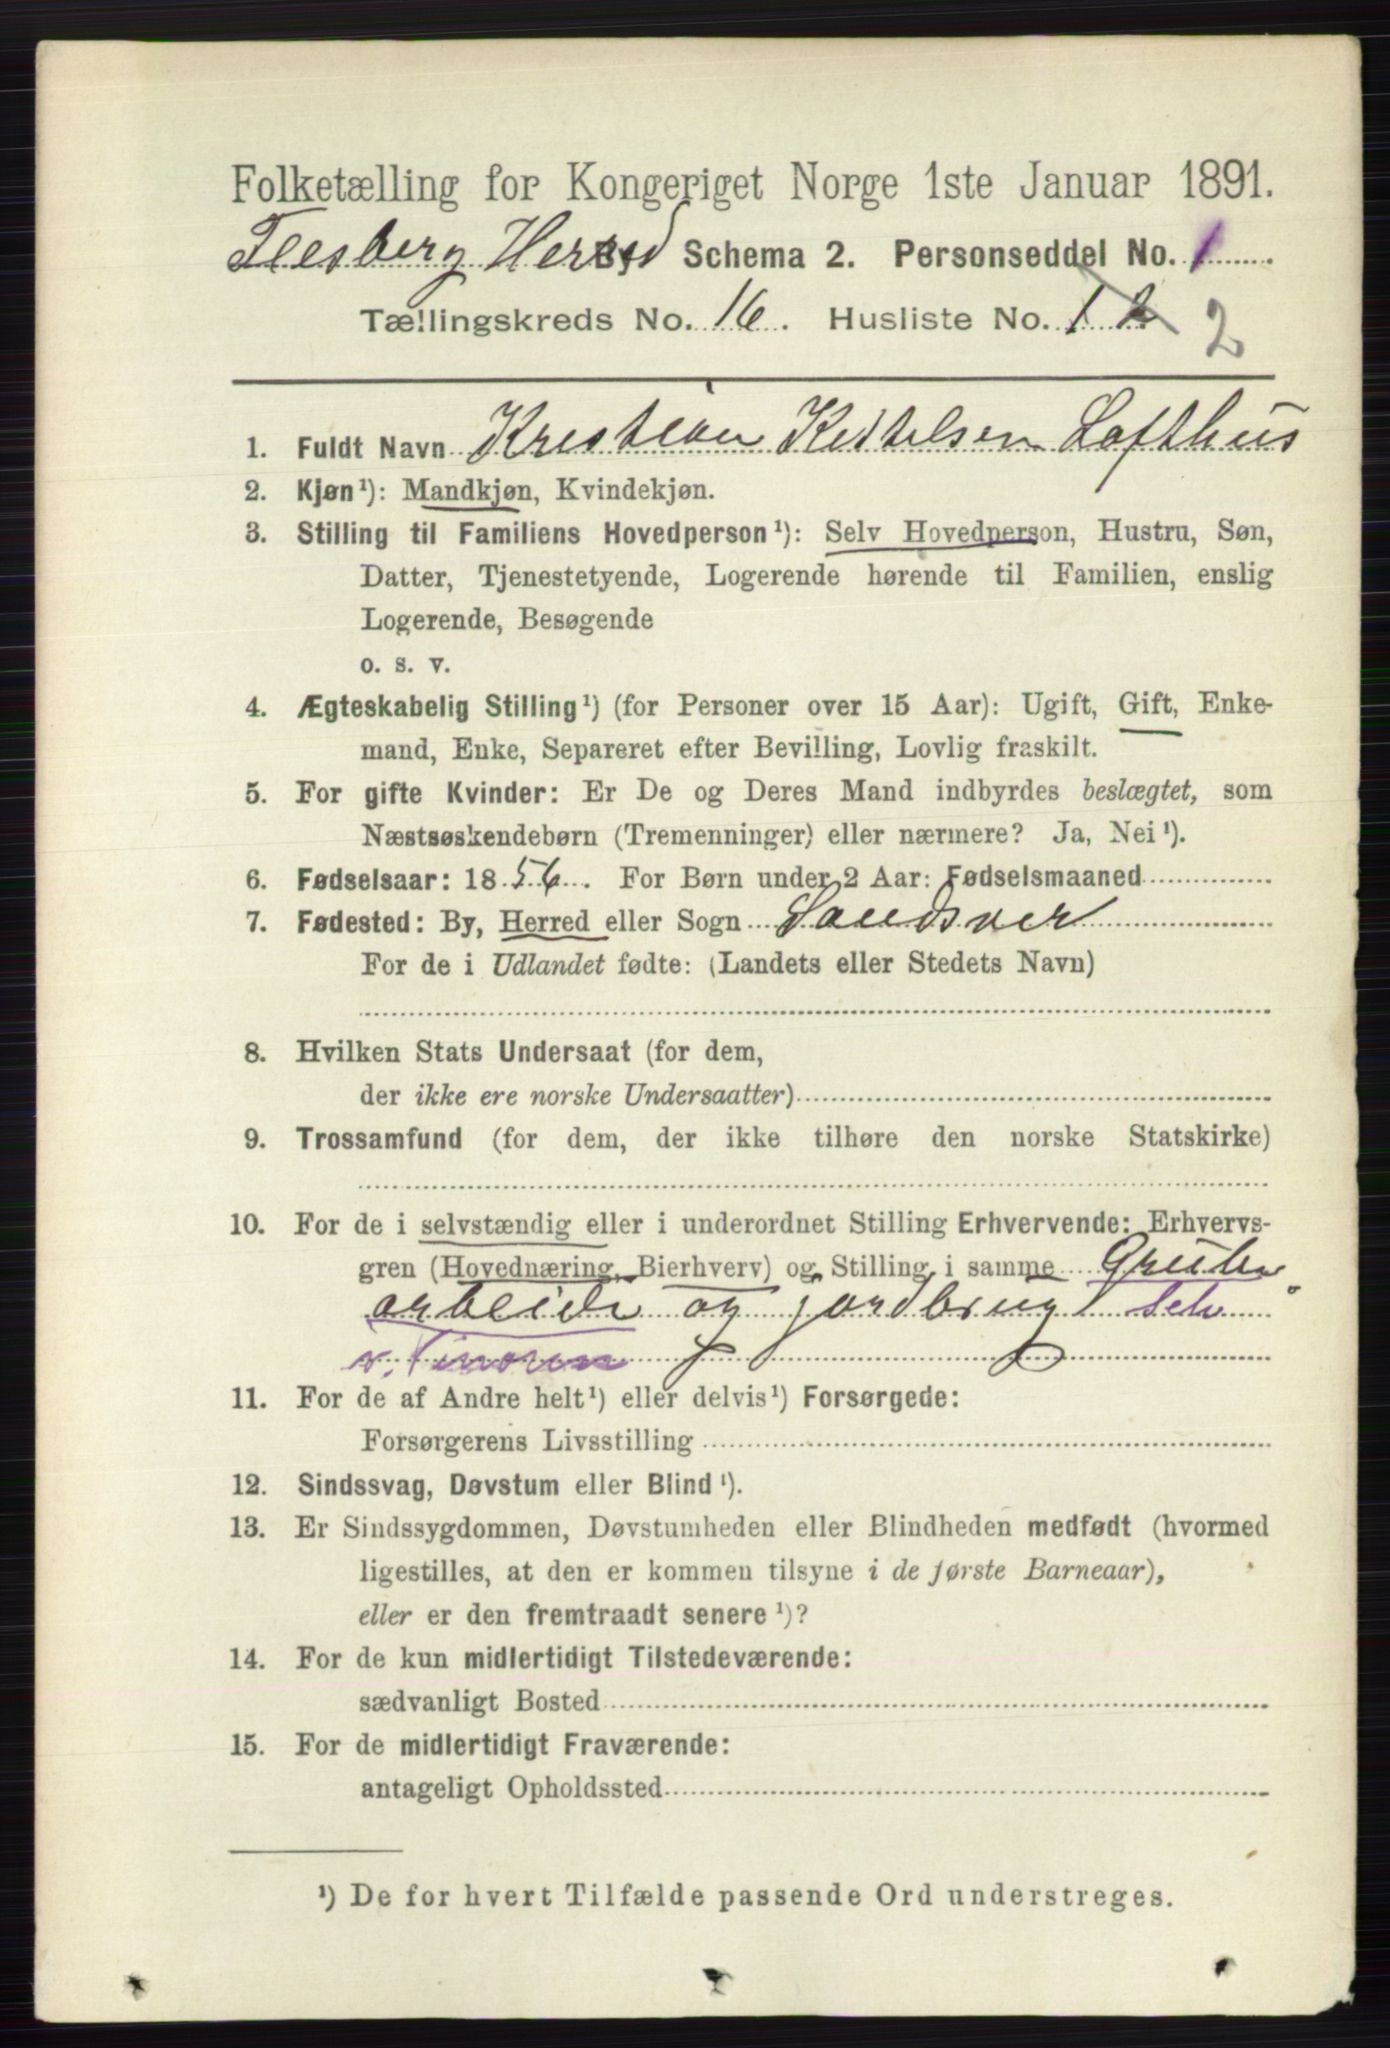 Folketælling for Kongeriget Norge 1ste Januar 1891.
Flesberg Herred Schema 2. Personseddel No. 1
Tællingskreds No. 16. Husliste No. 12
2
1. Fuldt Navn Kristian Kittelsen Lofthus
2. Kjøn¹): Mandkjøn, Kvindekjøn.
3. Stilling til Familiens Hovedperson¹): Selv Hovedperson, Hustru, Søn,
Datter, Tjenestetyende, Logerende hørende til Familien, enslig
Logerende, Besøgende
o. s. v.
4. Ægteskabelig Stilling¹) (for Personer over 15 Aar): Ugift, Gift, Enke-
mand, Enke, Separeret efter Bevilling, Lovlig fraskilt.
5. For gifte Kvinder: Er De og Deres Mand indbyrdes beslægtet, som
Næstsøskendebørn (Tremenninger) eller nærmere? Ja, Nei¹).
6. Fødselsaar: 1856. For Børn under 2 Aar: Fødselsmaaned
7. Fødested: By, Herred eller Sogn Sandsver
For de i Udlandet fødte: (Landets eller Stedets Navn)
8. Hvilken Stats Undersaat (for dem,
der ikke ere norske Undersaatter)
9. Trossamfund (for dem, der ikke tilhøre den norske Statskirke)
10. For de i selvstændig eller i underordnet Stilling Erhvervende: Erhvervs-
gren (Hovednæring, Bierhverv) og Stilling i samme Grube
arbeide og jordbrug Selv
11. For de af Andre helt¹) eller delvis¹) Forsørgede:
Forsørgerens Livsstilling
12. Sindssvag, Døvstum eller Blind¹).
13. Er Sindssygdommen, Døvstumheden eller Blindheden medfødt (hvormed
ligestilles, at den er kommen tilsyne i de første Barneaar),
eller er den fremtraadt senere¹)?
14. For de kun midlertidigt Tilstedeværende:
sædvanligt Bosted
15. For de midlertidigt Fraværende:
antageligt Opholdssted
¹) De for hvert Tilfælde passende Ord understreges.